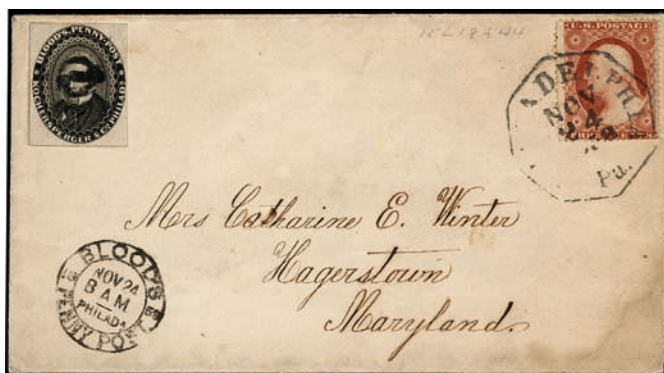 BLOOD'S PENNY POST
KOCHERSPERGER & CO. PHILADA
15L18 #44
U.S. POSTAGE
ADELPHIA
NOV
24
Pa.
Mrs Catharine E. Winter
Hagerstown
Maryland.
BLOOD'S
NOV 24
8 AM
PHILADA
PENNY POST